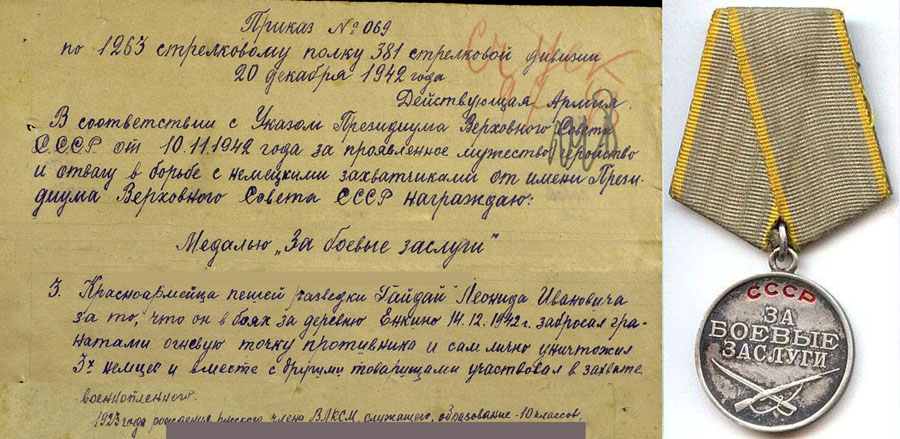 Приказ № 069
по 1263 стрелковому полку 381 стрелковой дивизии
20 декабря 1942 года.
Действующая Армия.
В соответствии с Указом Президиума Верховного Совета
СССР от 10.11.1942 года за проявленное мужество, геройство
и отвагу в борьбе с немецкими захватчиками от имени Прези-
диума Верховного Совета СССР награждаю:
Медалью „За боевые заслуги"
3. Красноармейца пешей разведки Гайдай Леонида Ивановича
за то, что он в боях за деревню Енкино 14.12.1942 г. забросал гра-
натами огневую точку противника и сам лично уничтожил
3х немцев и вместе с другими товарищами участвовал в захвате
военнопленного.
1923 года рождения, русского, члена ВЛКСМ, служащего, образование - 10 классов,
СССР
ЗА
БОЕВЫЕ
ЗАСЛУГИ